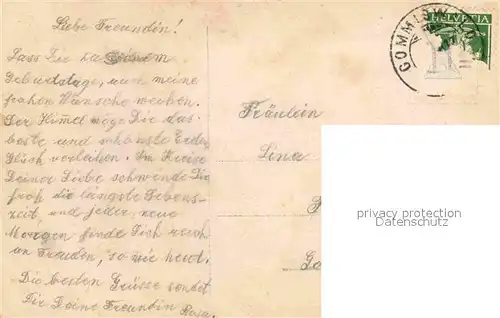 Liebe Freundin!
Lass Dir zu Deinem
Geburtstage, auch meine
frohen Wünsche weihen.
Der Himmel möge Dir das
beste und schönste Erden
Glück verleihen. Im Kreise
Deiner Liebe schwende Dir
froh die längste Lebens-
zeit, und jeder, neue
Morgen finde Dich reich
an Freuden, so wie heut.
Die besten Grüsse sendet
Dir Deine Freundin Rosa.
Fräulein
Lina
HELVETIA
GOMMISWALD
privacy protection
Datenschutz